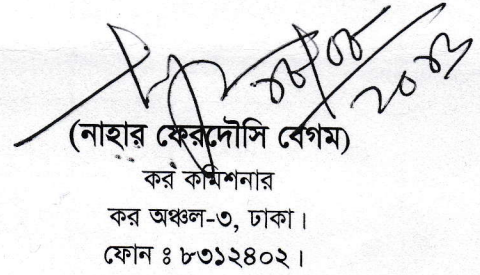 (নাহার ফেরদৌসি বেগম)
কর কমিশনার
কর অঞ্চল-৩, ঢাকা।
ফোন ঃ ৮৩১২৪০২।